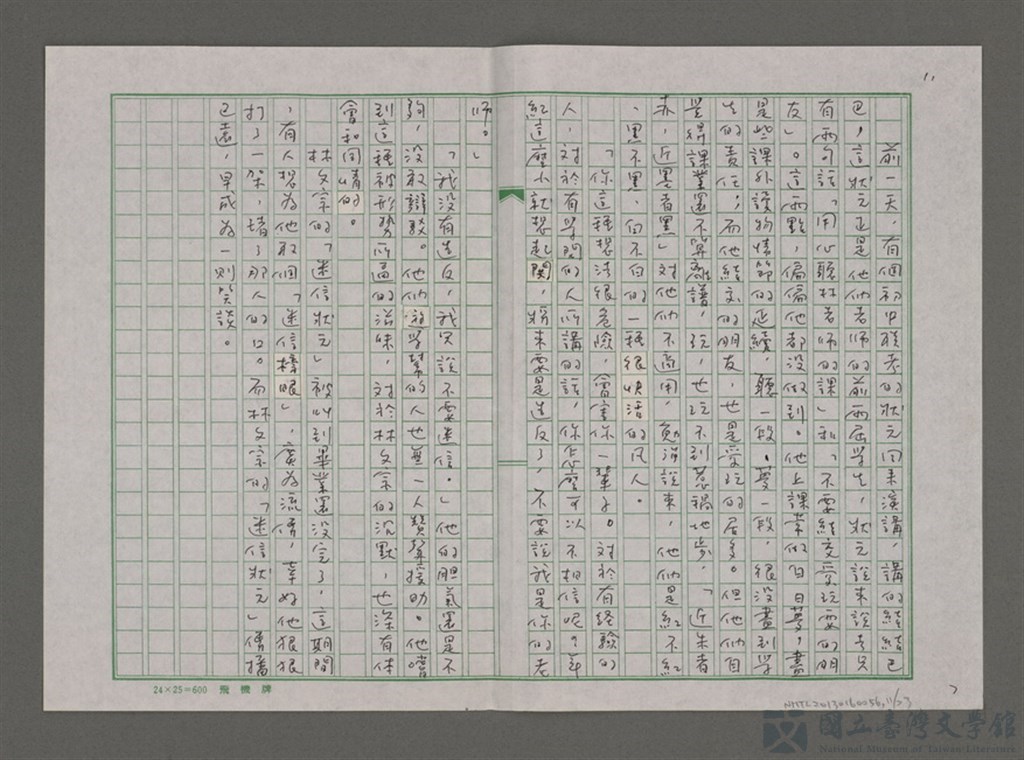 11
前一天,有個初中聯考的狀元回来演講,講的結結巴
巴,這狀元正是他們老師的前兩屆學生,狀元說来說去只
有兩句話「用心聽老師的課」和「不要結交愛玩耍的朋
友」。這兩點,偏偏他都没做到。他上課常做白日夢,書
是些課外讀物情節的延續,聽一段,夢一段,很没盡到學
生的責任;而他結交的朋友,也是愛玩的居多。但他們自
覺得課業還不算離譜,玩,也玩不到惹禍地步,「近朱者
赤,近墨者黑」对他們不適用,勉強說来,他們是紅不紅
、黑不黑、白不白的一種很快活的凡人。
「你這種想法很危險,會害你一輩子。对於有經驗的
人,对於有學問的人所講的話,你怎麼可以不相信呢?年
紀這麼小就想起関,将来要是造反了,不要說我是你的老
師。」
「我没有造反,我只說不要迷信。」他的胆氣還是不
夠,没敢辯駁。他們遊學幫的人也無一人贊聲援助。他嚐
到這種被形勢所逼的滋味,对於林文宗的沉默,也深有体
會和同情的。
林文宗的「迷信狀元」被叫到畢業還没完了,這期間
,有人想為他取個「迷信榜眼」,廣為流傳,幸好他狠狠
打了一架,堵了那人的口。而林文宗的「迷信狀元」傳播
已遠,早成為一則笑談。
7
24×25=600 飛機牌
NMTL20130160056,11/23
國立臺灣文學館
National Museum of Taiwan Literature